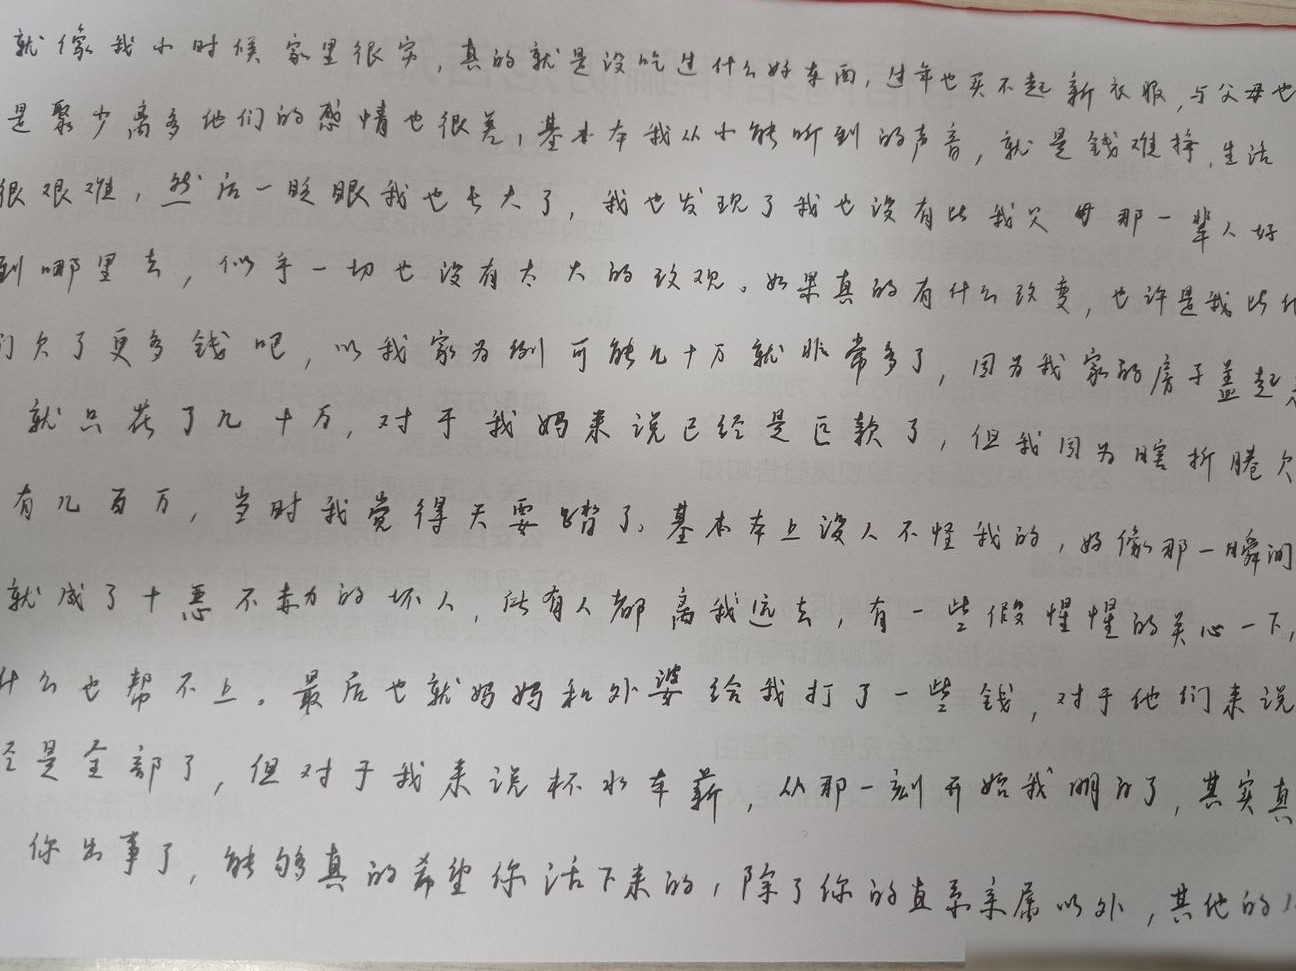 就像我小时候家里很穷，真的就是没吃过什么好东西，过年也买不起新衣服，与父母也
是聚少离多他们的感情也很差，基本本我从小能听到的声音，就是钱难挣，生活
很艰难，然后一眨眼我也长大了，我也发现了我也没有比我父母那一辈人好
到哪里去，似乎一切也没有太大的改观。如果真的有什么改变，也许是我比他
们欠了更多钱吧，以我家为例可能几十万就非常多了，因为我家的房子盖起来
就只花了几十万，对于我妈来说已经是巨款了，但我因为瞎折腾欠
有几百万，当时我觉得天要踏了。基本本上没人不怪我的，好像那一瞬间
就成了十恶不赦的坏人，所有人都离我远去，有一些假惺惺的关心一下，
什么也帮不上。最后也就妈妈和外婆给我打了一些钱，对于他们来说
经是全部了，但对于我来说杯水车薪，从那一刻开始我明白了，其实真
你出事了，能够真的希望你活下来的，除了你的直系亲属以外，其他的